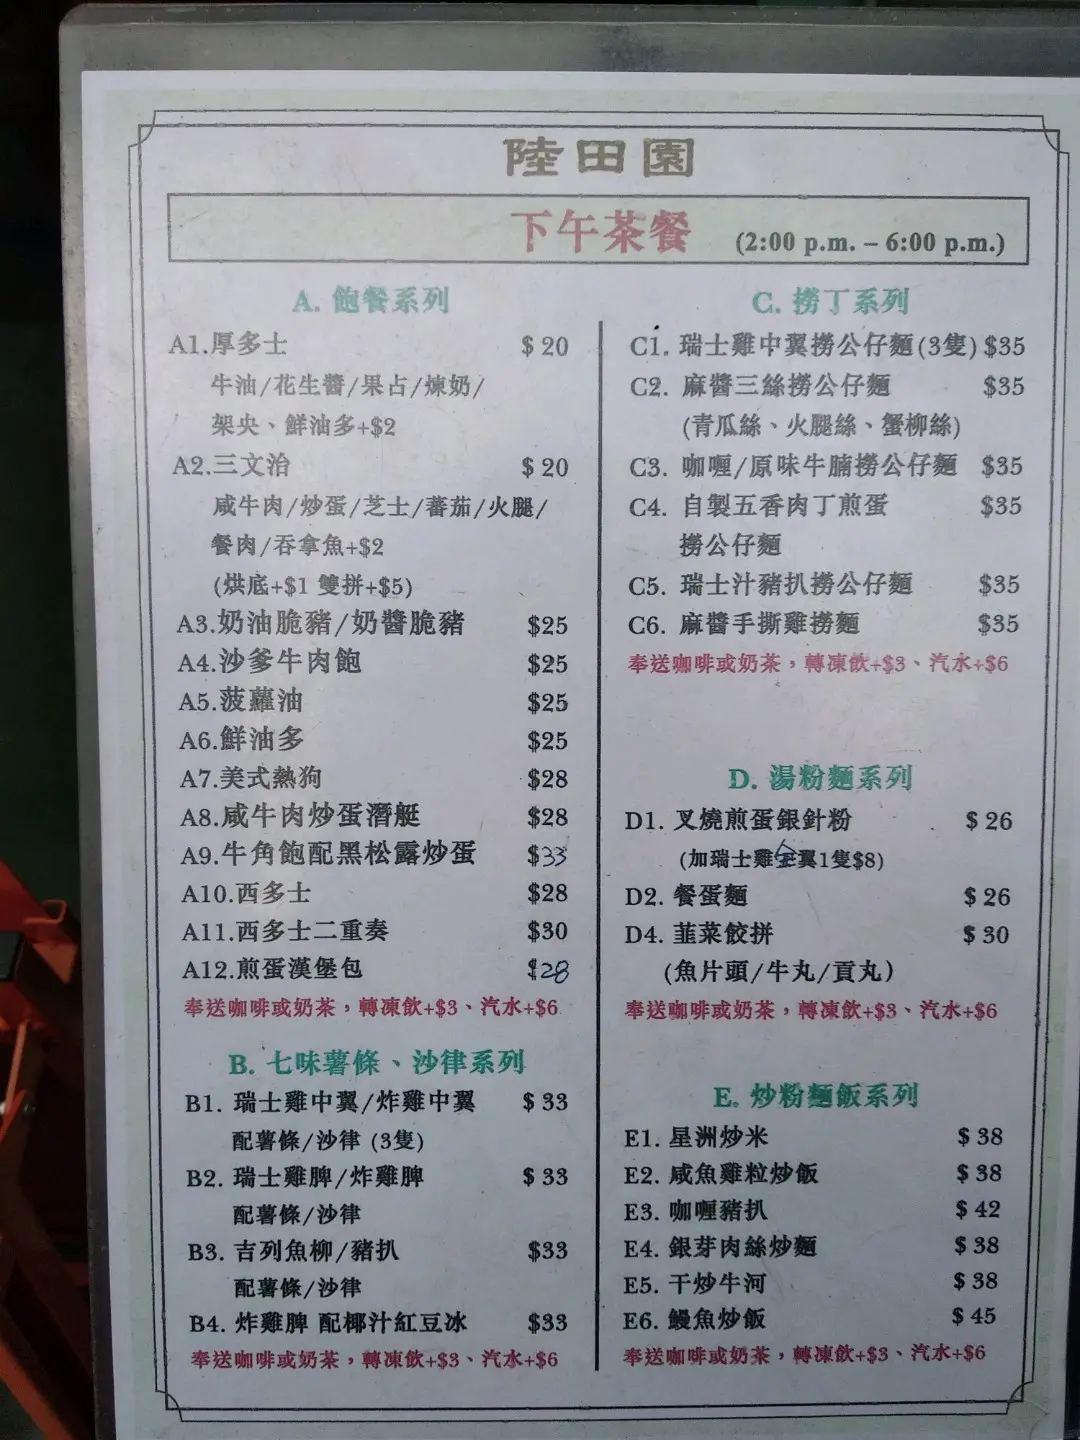 陸田園
下午茶餐 (2:00 p.m. – 6:00 p.m.)
A. 飽餐系列
A1.厚多士 $ 20
牛油/花生醬/果占/煉奶/
架央、鮮油多+$2
A2.三文治 $ 20
咸牛肉/炒蛋/芝士/蕃茄/火腿/
餐肉/吞拿魚+$2
(烘底+$1 雙拼+$5)
A3.奶油脆豬/奶醬脆豬 $25
A4.沙爹牛肉飽 $25
A5.菠蘿油 $25
A6.鮮油多 $25
A7.美式熱狗 $28
A8.咸牛肉炒蛋潛艇 $28
A9.牛角飽配黑松露炒蛋 $33
A10.西多士 $28
A11.西多士二重奏 $30
A12.煎蛋漢堡包 $28
奉送咖啡或奶茶，轉凍飲+$3、汽水+$6
B. 七味薯條、沙律系列
B1. 瑞士雞中翼/炸雞中翼 $ 33
配薯條/沙律 (3隻)
B2. 瑞士雞脾/炸雞脾 $ 33
配薯條/沙律
B3. 吉列魚柳/豬扒 $33
配薯條/沙律
B4. 炸雞脾 配椰汁紅豆冰 $33
奉送咖啡或奶茶，轉凍飲+$3、汽水+$6
C. 撈丁系列
C1. 瑞士雞中翼撈公仔麵(3隻) $35
C2. 麻醬三絲撈公仔麵 $35
(青瓜絲、火腿絲、蟹柳絲)
C3. 咖喱/原味牛腩撈公仔麵 $35
C4. 自製五香肉丁煎蛋 $35
撈公仔麵
C5. 瑞士汁豬扒撈公仔麵 $35
C6. 麻醬手撕雞撈麵 $35
奉送咖啡或奶茶，轉凍飲+$3、汽水+$6
D. 湯粉麵系列
D1. 叉燒煎蛋銀針粉 $ 26
(加瑞士雞全翼1隻$8)
D2. 餐蛋麵 $ 26
D4. 韮菜餃拼 $ 30
(魚片頭/牛丸/貢丸)
奉送咖啡或奶茶，轉凍飲+$3、汽水+$6
E. 炒粉麵飯系列
E1. 星洲炒米 $ 38
E2. 咸魚雞粒炒飯 $ 38
E3. 咖喱豬扒 $ 42
E4. 銀芽肉絲炒麵 $ 38
E5. 干炒牛河 $ 38
E6. 鰻魚炒飯 $ 45
奉送咖啡或奶茶，轉凍飲+$3、汽水+$6